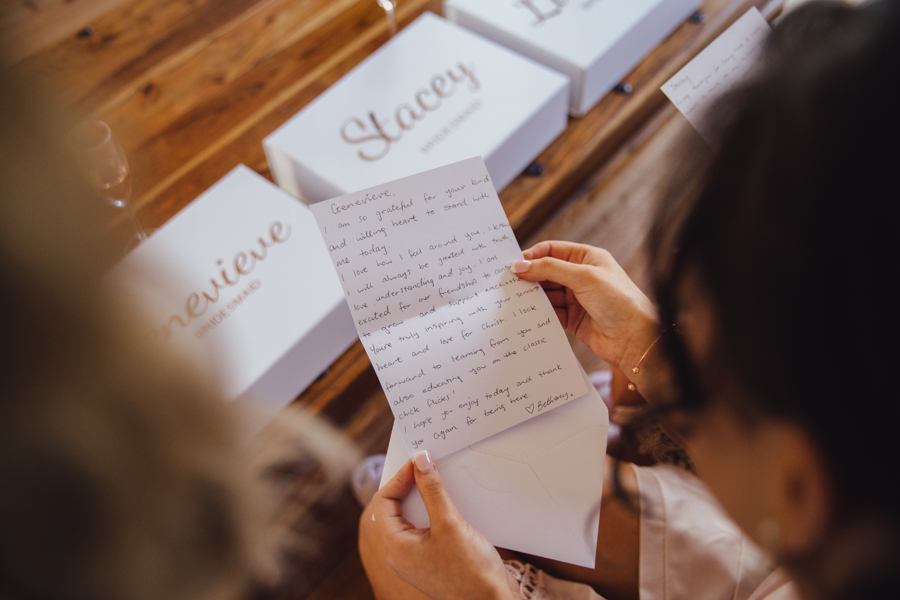 Stacey
BRIDESMAID
Genevieve
BRIDESMAID
Genevieve,
I am so grateful for your kind
and willing heart to stand with
me today.
I love how I feel around you, I know
I will always be greeted with truth
love understanding and joy. I am
excited for our friendship to
to grow and support eachother
You're truly inspiring with your
heart and love for Christ. I look
forward to learning from you and
also educating you on the classic
chick flicks!
I hope you enjoy today and thank
you again for being here
♡ Bethany.